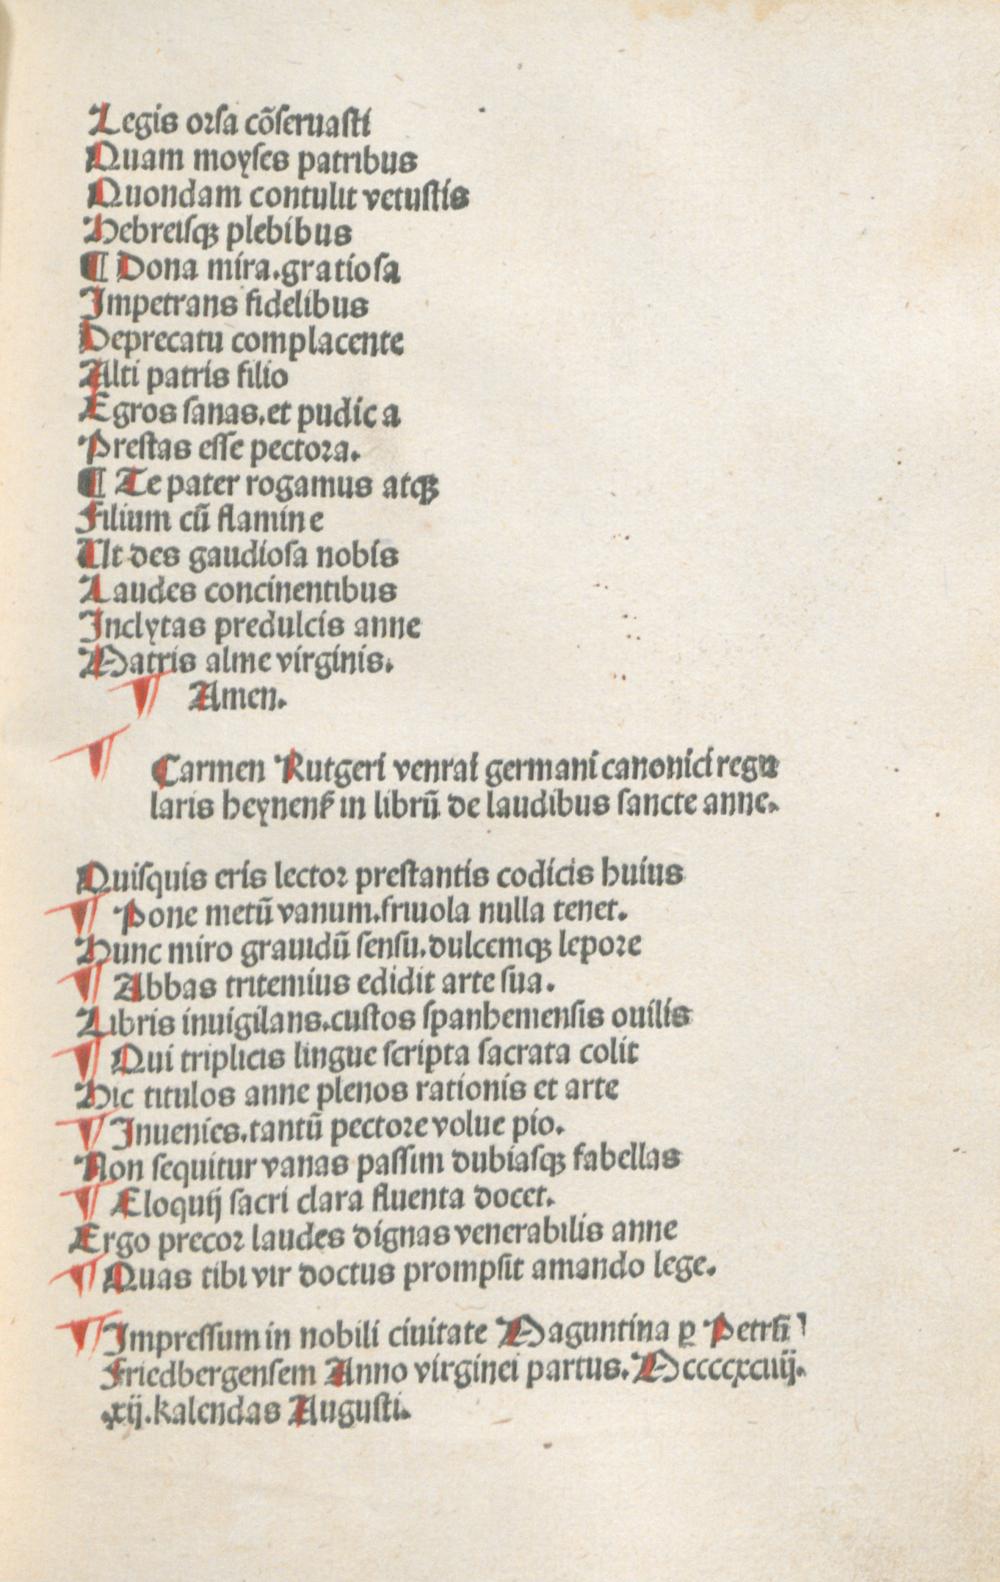 Legis orſa cõſeruaſti
Quam moyſes patribus
Quondam contulit vetuſtis
Hebreiſqꝫ plebibus
¶ Dona mira.gratioſa
Impetrans fidelibus
Deprecatu complacente
Alti patris filio
Egros ſanas.et pudica
Preſtas eſſe pectora.
¶ Te pater rogamus atqꝫ
Filium cũ flamine
Ut des gaudioſa nobis
Laudes concinentibus
Inclytas predulcis anne
Matris alme virginis.
¶ Amen.
¶ Carmen Rutgeri venrai germani canonici regu
laris heynenẜ in librũ de laudibus ſancte anne.
Quiſquis eris lector preſtantis codicis huius
¶ Pone metũ vanum.friuola nulla tenet.
Hunc miro grauidũ ſenſu.dulcemqꝫ lepore
¶ Abbas tritemius edidit arte ſua.
Libris inuigilans.cuſtos ſpanhemenſis ouilis
¶ Qui triplicis lingue ſcripta ſacrata colit
Hic titulos anne plenos rationis et arte
¶ Inuenies.tantũ pectore volue pio.
Non ſequitur vanas paſſim dubiaſqꝫ fabellas
¶ Eloquij ſacri clara fluenta docet.
Ergo precor laudes dignas venerabilis anne
¶ Quas tibi vir doctus prompſit amando lege.
¶ Impreſſum in nobili ciuitate Maguntina ꝑ Petrũ
Friedbergenſem Anno virginei partus.Mccccxciiij.
.xij.kalendas Auguſti.